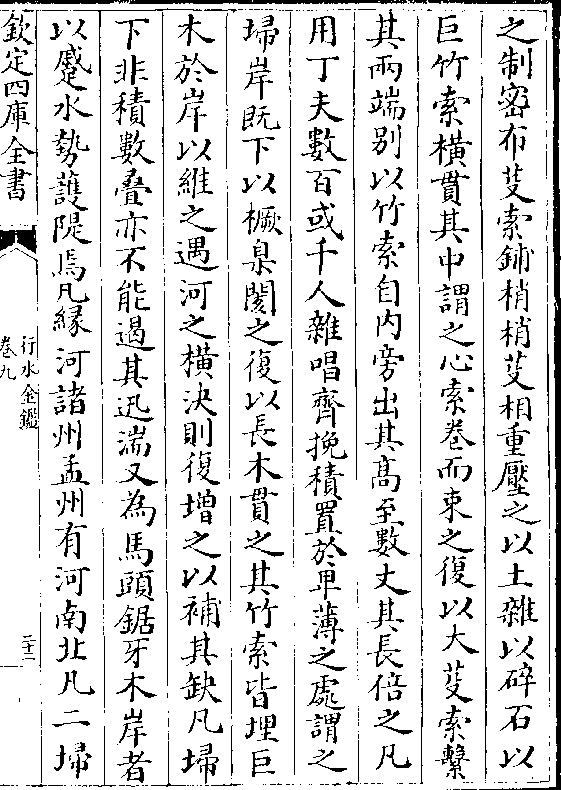 之制密布芟索鋪梢梢芟相重壓之以土雜以碎石以
巨竹索橫貫其中謂之心索卷而束之復以大芟索繫
其兩端别以竹索自内旁出其髙至數丈其長倍之凡
用丁夫數百或千人雜唱齊挽積置於卑薄之處謂之
埽岸既下以橛臬閡之復以長木貫之其竹索皆埋巨
木於岸以維之遇河之橫決則復增之以補其缺凡埽
下非積數疊亦不能遏其迅湍又為馬頭鋸牙木岸者
以蹙水勢護隄焉凡縁河諸州孟州有河南北凡二埽
欽定四庫全書
行水金鑑
卷九
二十二